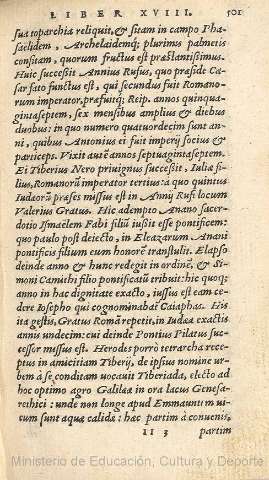 LIBER XVIII. 501
sua toparchia reliquit, & sitam in campo Pha-
saelidem, Archelaidemq; plurimis palmetis
consitam, quorum fructus est præstantissimus.
Huic successit Annius Rufus, quo præside Cæ-
sar fato functus est, qui secundus fuit Romano-
rum imperator, præfuitq; Reip. annos quinqua-
gintaseptem, sex mensibus amplius & diebus
duobus: in quo numero quatuordecim sunt an-
ni, quibus Antonius ei fuit imperij socius &
particeps. Vixit autē annos septuagintaseptem.
Ei Tiberius Nero priuignus successit, Iuliæ fi-
lius, Romanorū imperator tertius: a quo quintus
Iudæorū præses missus est in Annij Rufi locum
Valerius Gratus. Hic adempto Anano sacer-
dotio Ismaelem Fabi filiū iussit esse pontificem:
quo paulo post deiecto, in Eleazarum Anani
pontificis filium eum honorē transtulit. Elapso
deinde anno & hunc redegit in ordinē, & Si-
moni Camithi filio pontificatū tribuit: hic quoq;
anno in hac dignitate exacto, iussus est eam ce-
dere Iosepho qui cognominabat Caiaphas. His
ita gestis, Gratus Romā repetit, in Iudæa exactis
annis undecim: cui deinde Pontius Pilatus suc-
cessor missus est. Herodes porrò tetrarcha rece-
ptus in amicitiam Tiberij, de ipsius nomine ur-
bem à se conditam uocauit Tiberiada, electo ad
hoc optimo agro Galilææ in ora lacus Genesa-
rethici: unde non longe apud Emmauntem ui-
cum sunt aquæ calidæ: hæc partim à conuenis,
II 3 partim
Ministerio de Educación, Cultura y Deporte